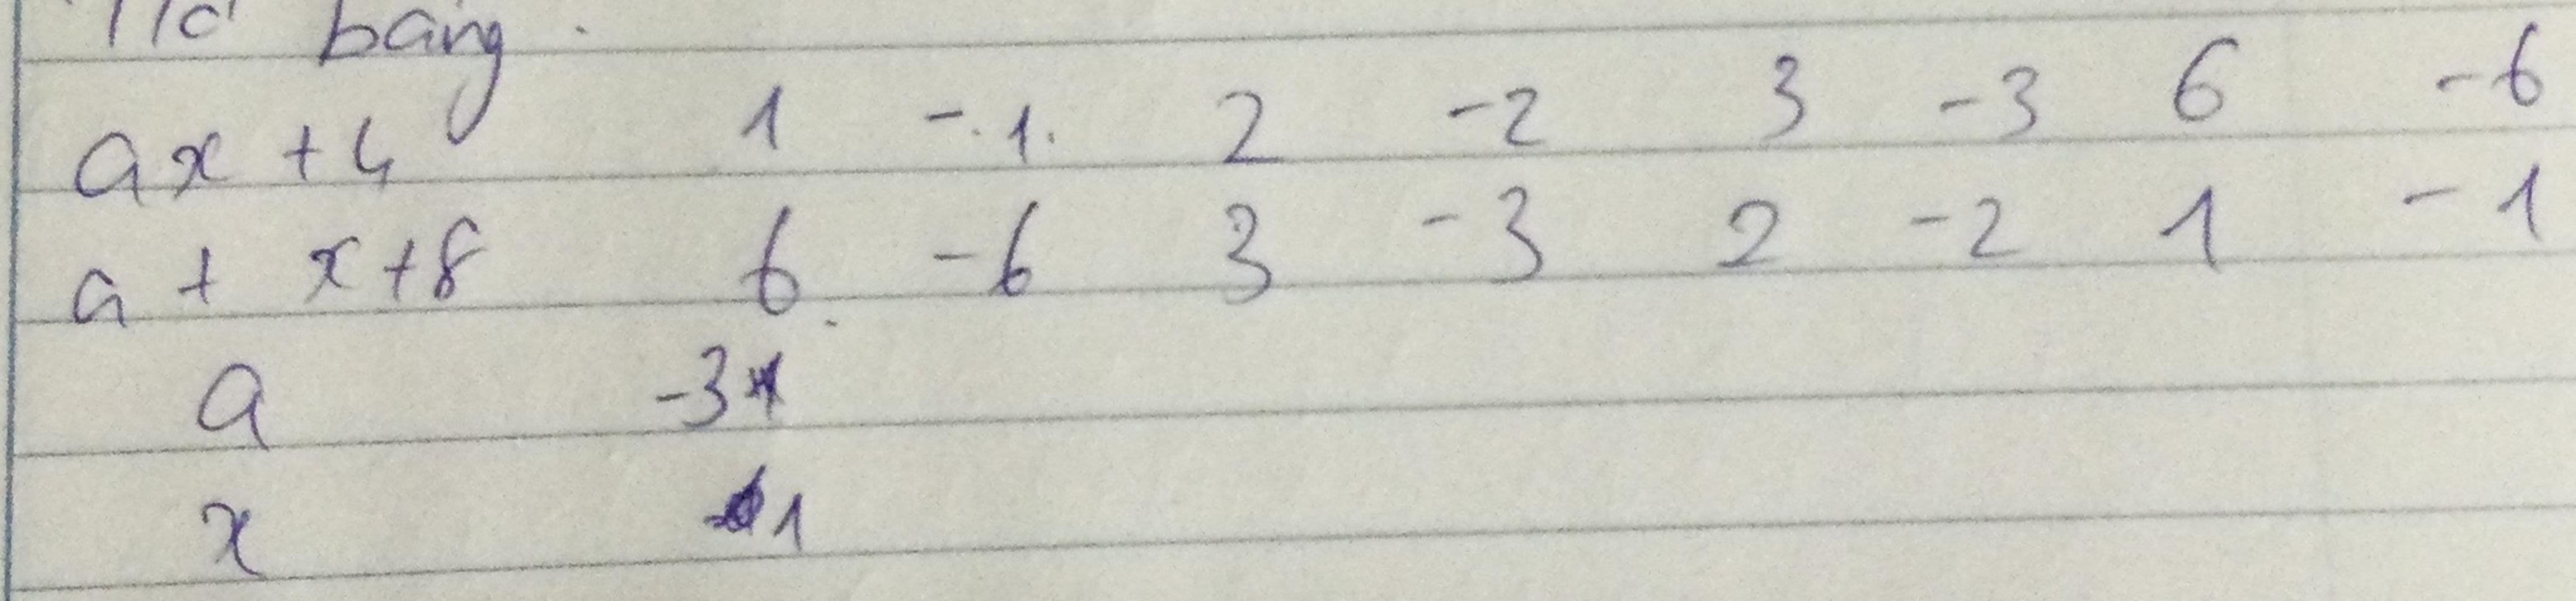 bảng.
ax + 4 1 -1 2 -2 3 -3 6 -6
a + x + 8 6 -6 3 -3 2 -2 1 -1
a -3
x 1